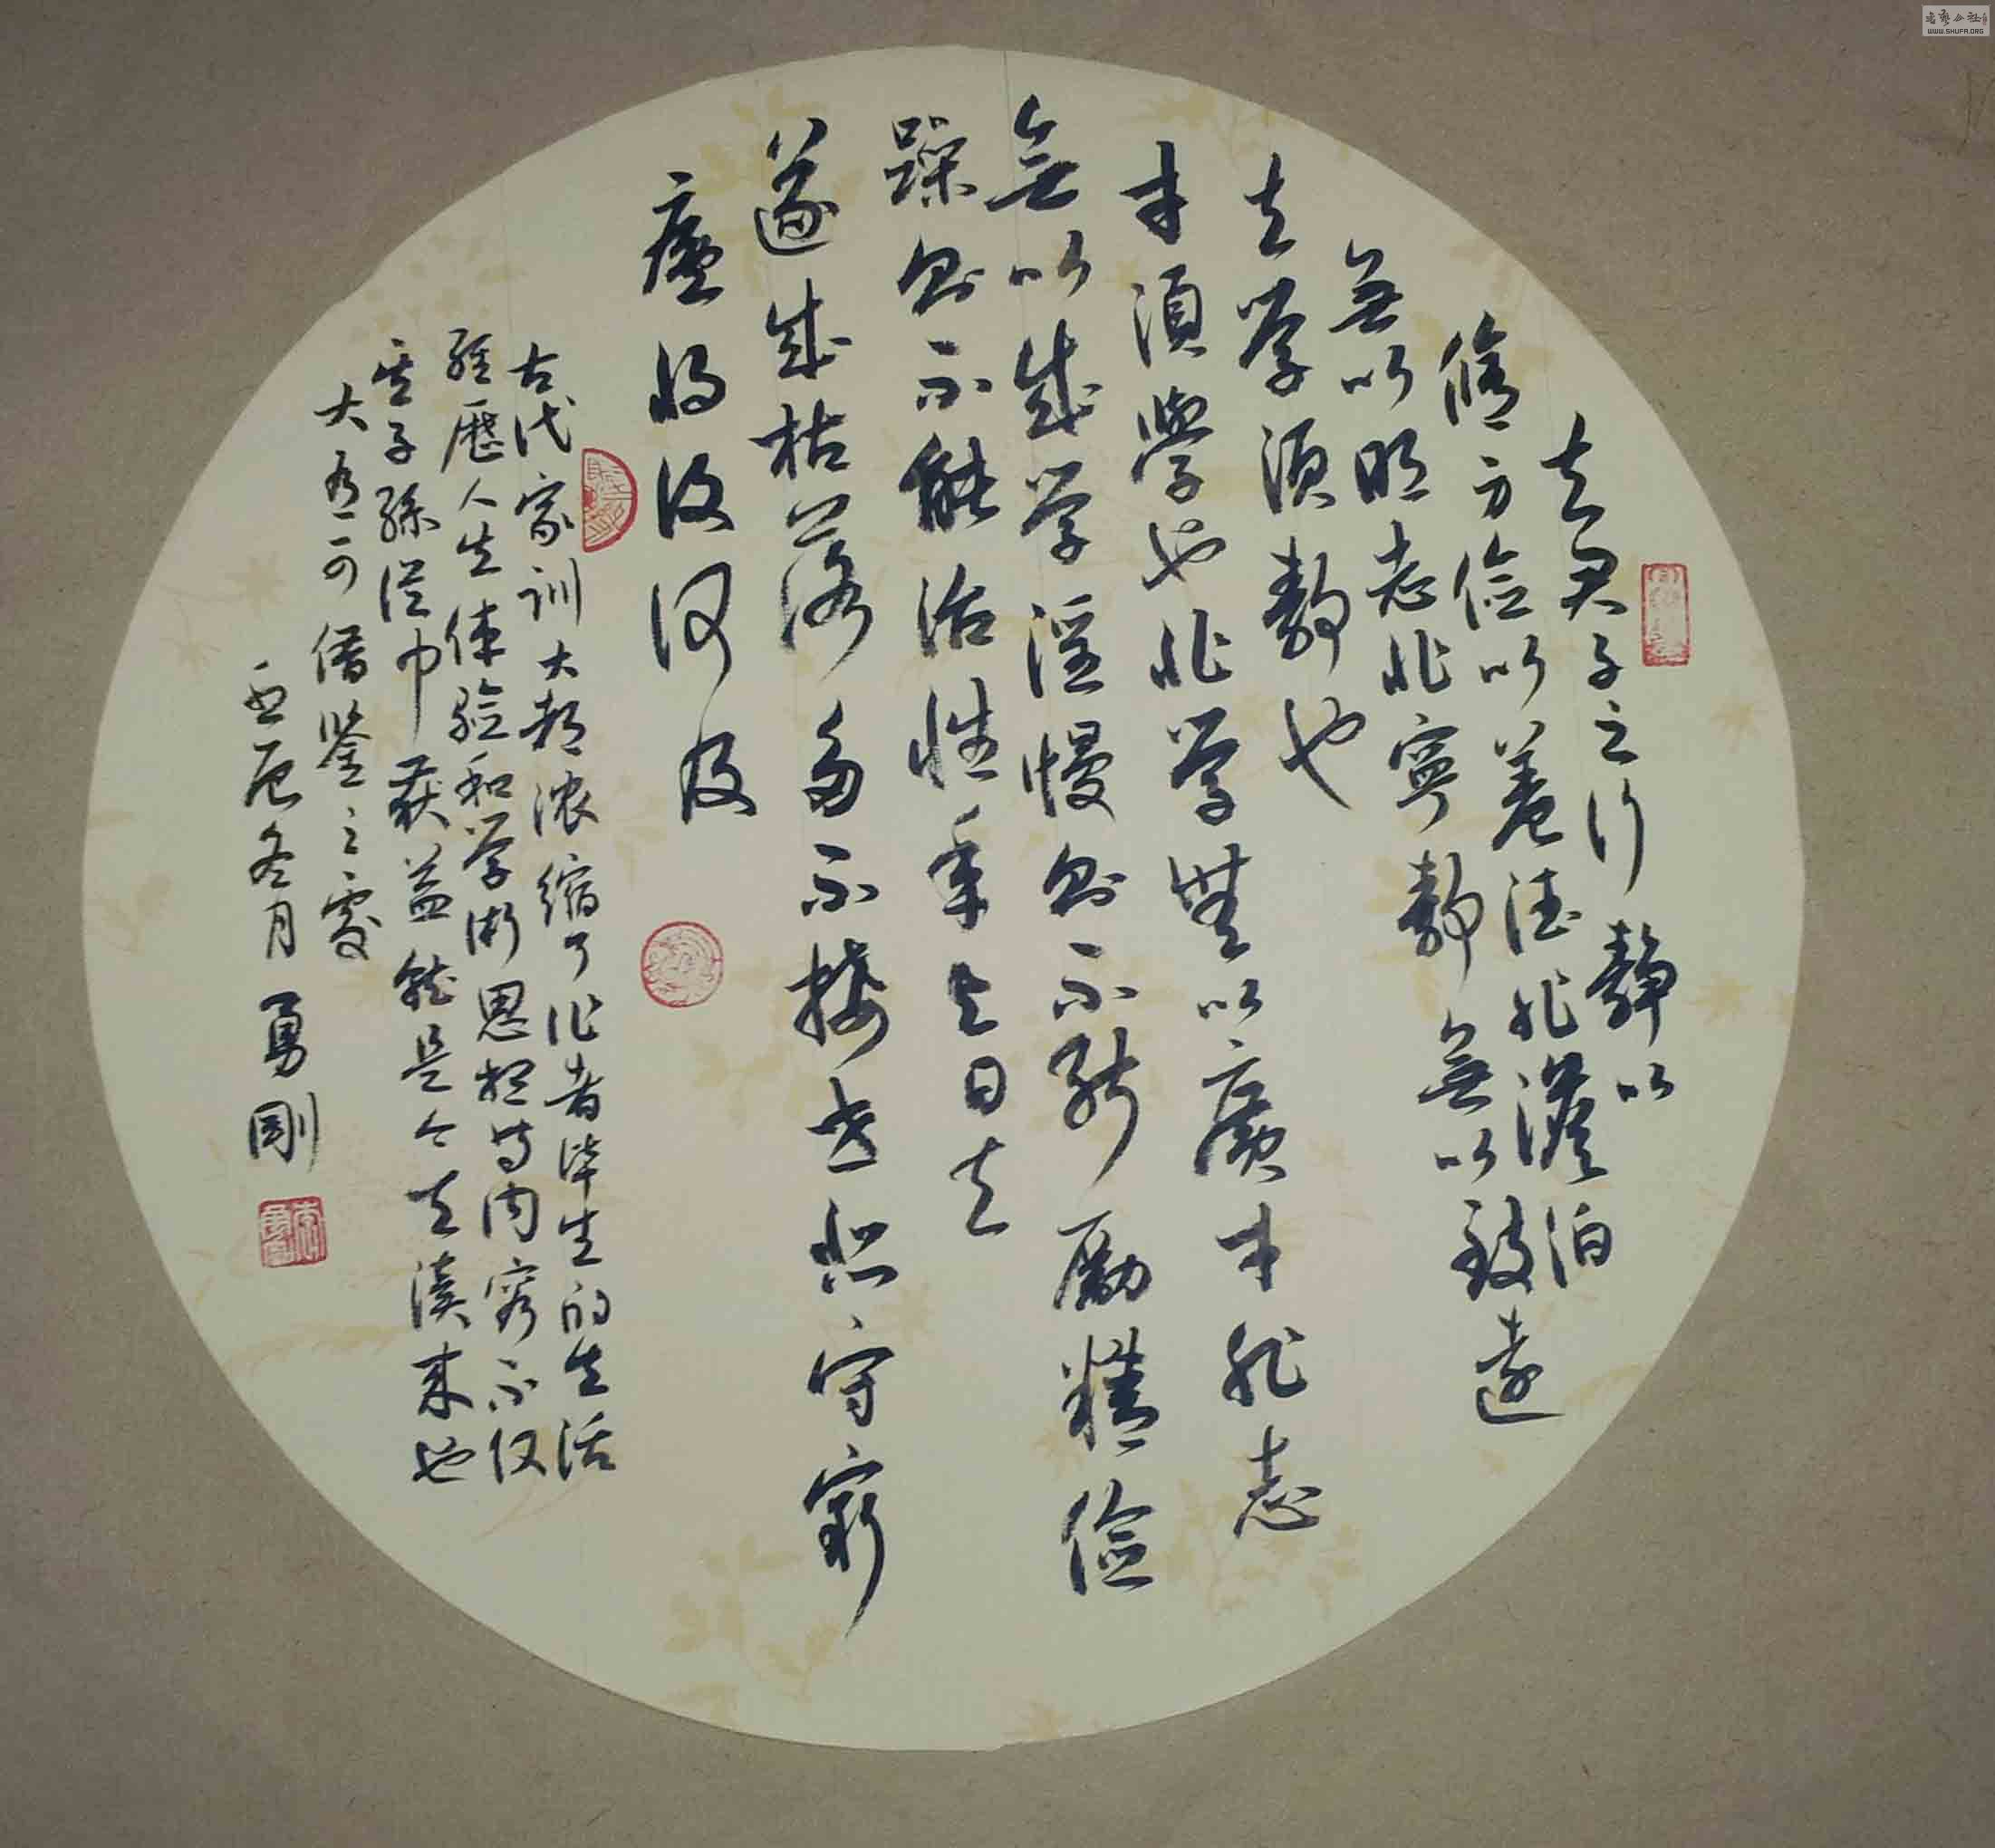 夫君子之行靜以
脩身俭以養德非澹泊
無以明志非寧靜無以致遠
夫学須靜也
才須學也非学無以廣才非志
無以成学淫慢則不能勵精俭
躁則不能治性年与日去
遂成枯落多不接世悲守窮
廬將復何及
古代家训大都浓缩了作者毕生的生活
經歷人生体验和学術思想等内容不仅
其子孫從中获益就是今天读来也
大有可借鉴之處
辰冬月勇剛
WWW.SHUFA.ORG